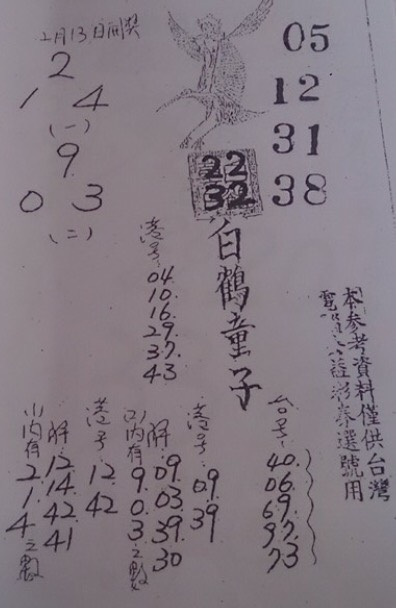 2月13日開獎
2
1 4
(一)
9
0 3
(二)
05
12
31
38
22
32
白鶴童子
港号:
04.
10.
16.
29.
37.
43
本參考資料僅供台灣
電公益彩券選號用
台号:
40.
06.
69.
97.
73
港号:
09
39
(2)內有9.0.3.之數
解:
09.
03.
39.
30
港号
12.
42
(1)內有2.1.4之數
解:
12.
14.
42.
41